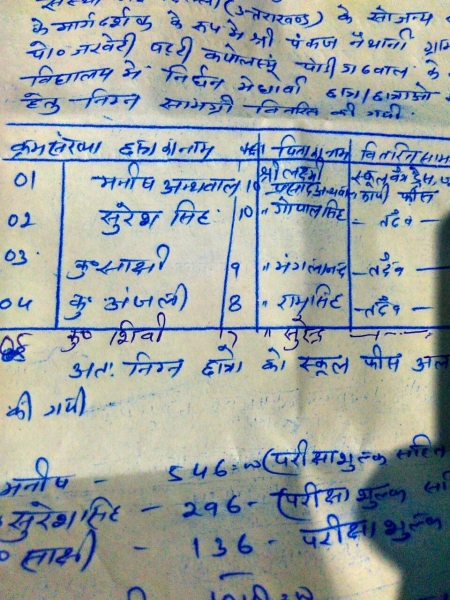 संस्था (उत्तराखण्ड) के सौजन्य
के मार्गदर्शक के रूप में श्री पंकज नैथानी ग्राम
पो० जखेटी पट्टी कपोलस्यूं पौड़ी गढवाल के
विद्यालय में निर्धन मेधावी छात्र/छात्राओ
हेतु निम्न सामग्री वितरित की गयी
क्रमसंख्या छात्र का नाम कक्षा पिता का नाम वितरित साम
01 मनीष अन्थवाल 10 श्री लक्ष्मी प्रसाद अन्थवाल स्कूल बैग, ड्रैस, कापी फीस
02 सुरेश सिंह 10 " गोपाल सिंह - तदैव -
03 कु० साक्षी 9 " मंगलानन्द - तदैव -
04 कु० अंजली 8 " रामू सिंह - तदैव -
05 कु० शिवी 7 " सुरेन्द्र
अतः निम्न छात्रो को स्कूल फीस अल
की गयी
मनीष - 546=00 (परीक्षा शुल्क सहित
सुरेश सिंह - 296 - (परीक्षा शुल्क सहि
साक्षी) - 136 - परीक्षा शुल्क